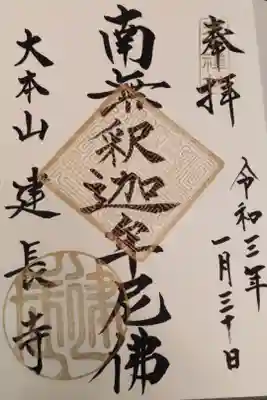 奉拝
令和三年
一月三十日
南無釈迦牟尼佛
大本山建長寺